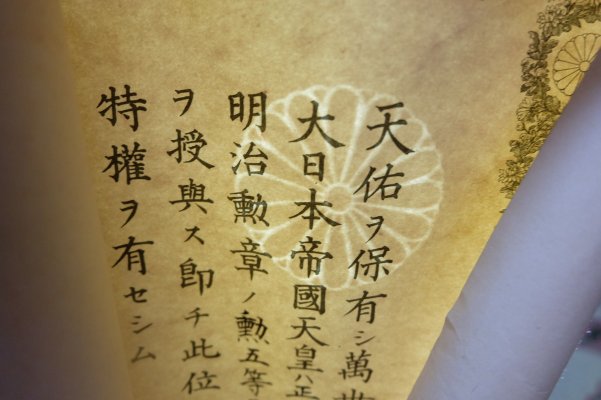 天佑ヲ保有シ萬世
大日本帝國天皇ハ正
明治勳章ノ勳五等
ヲ授與ス卽チ此位
特權ヲ有セシム